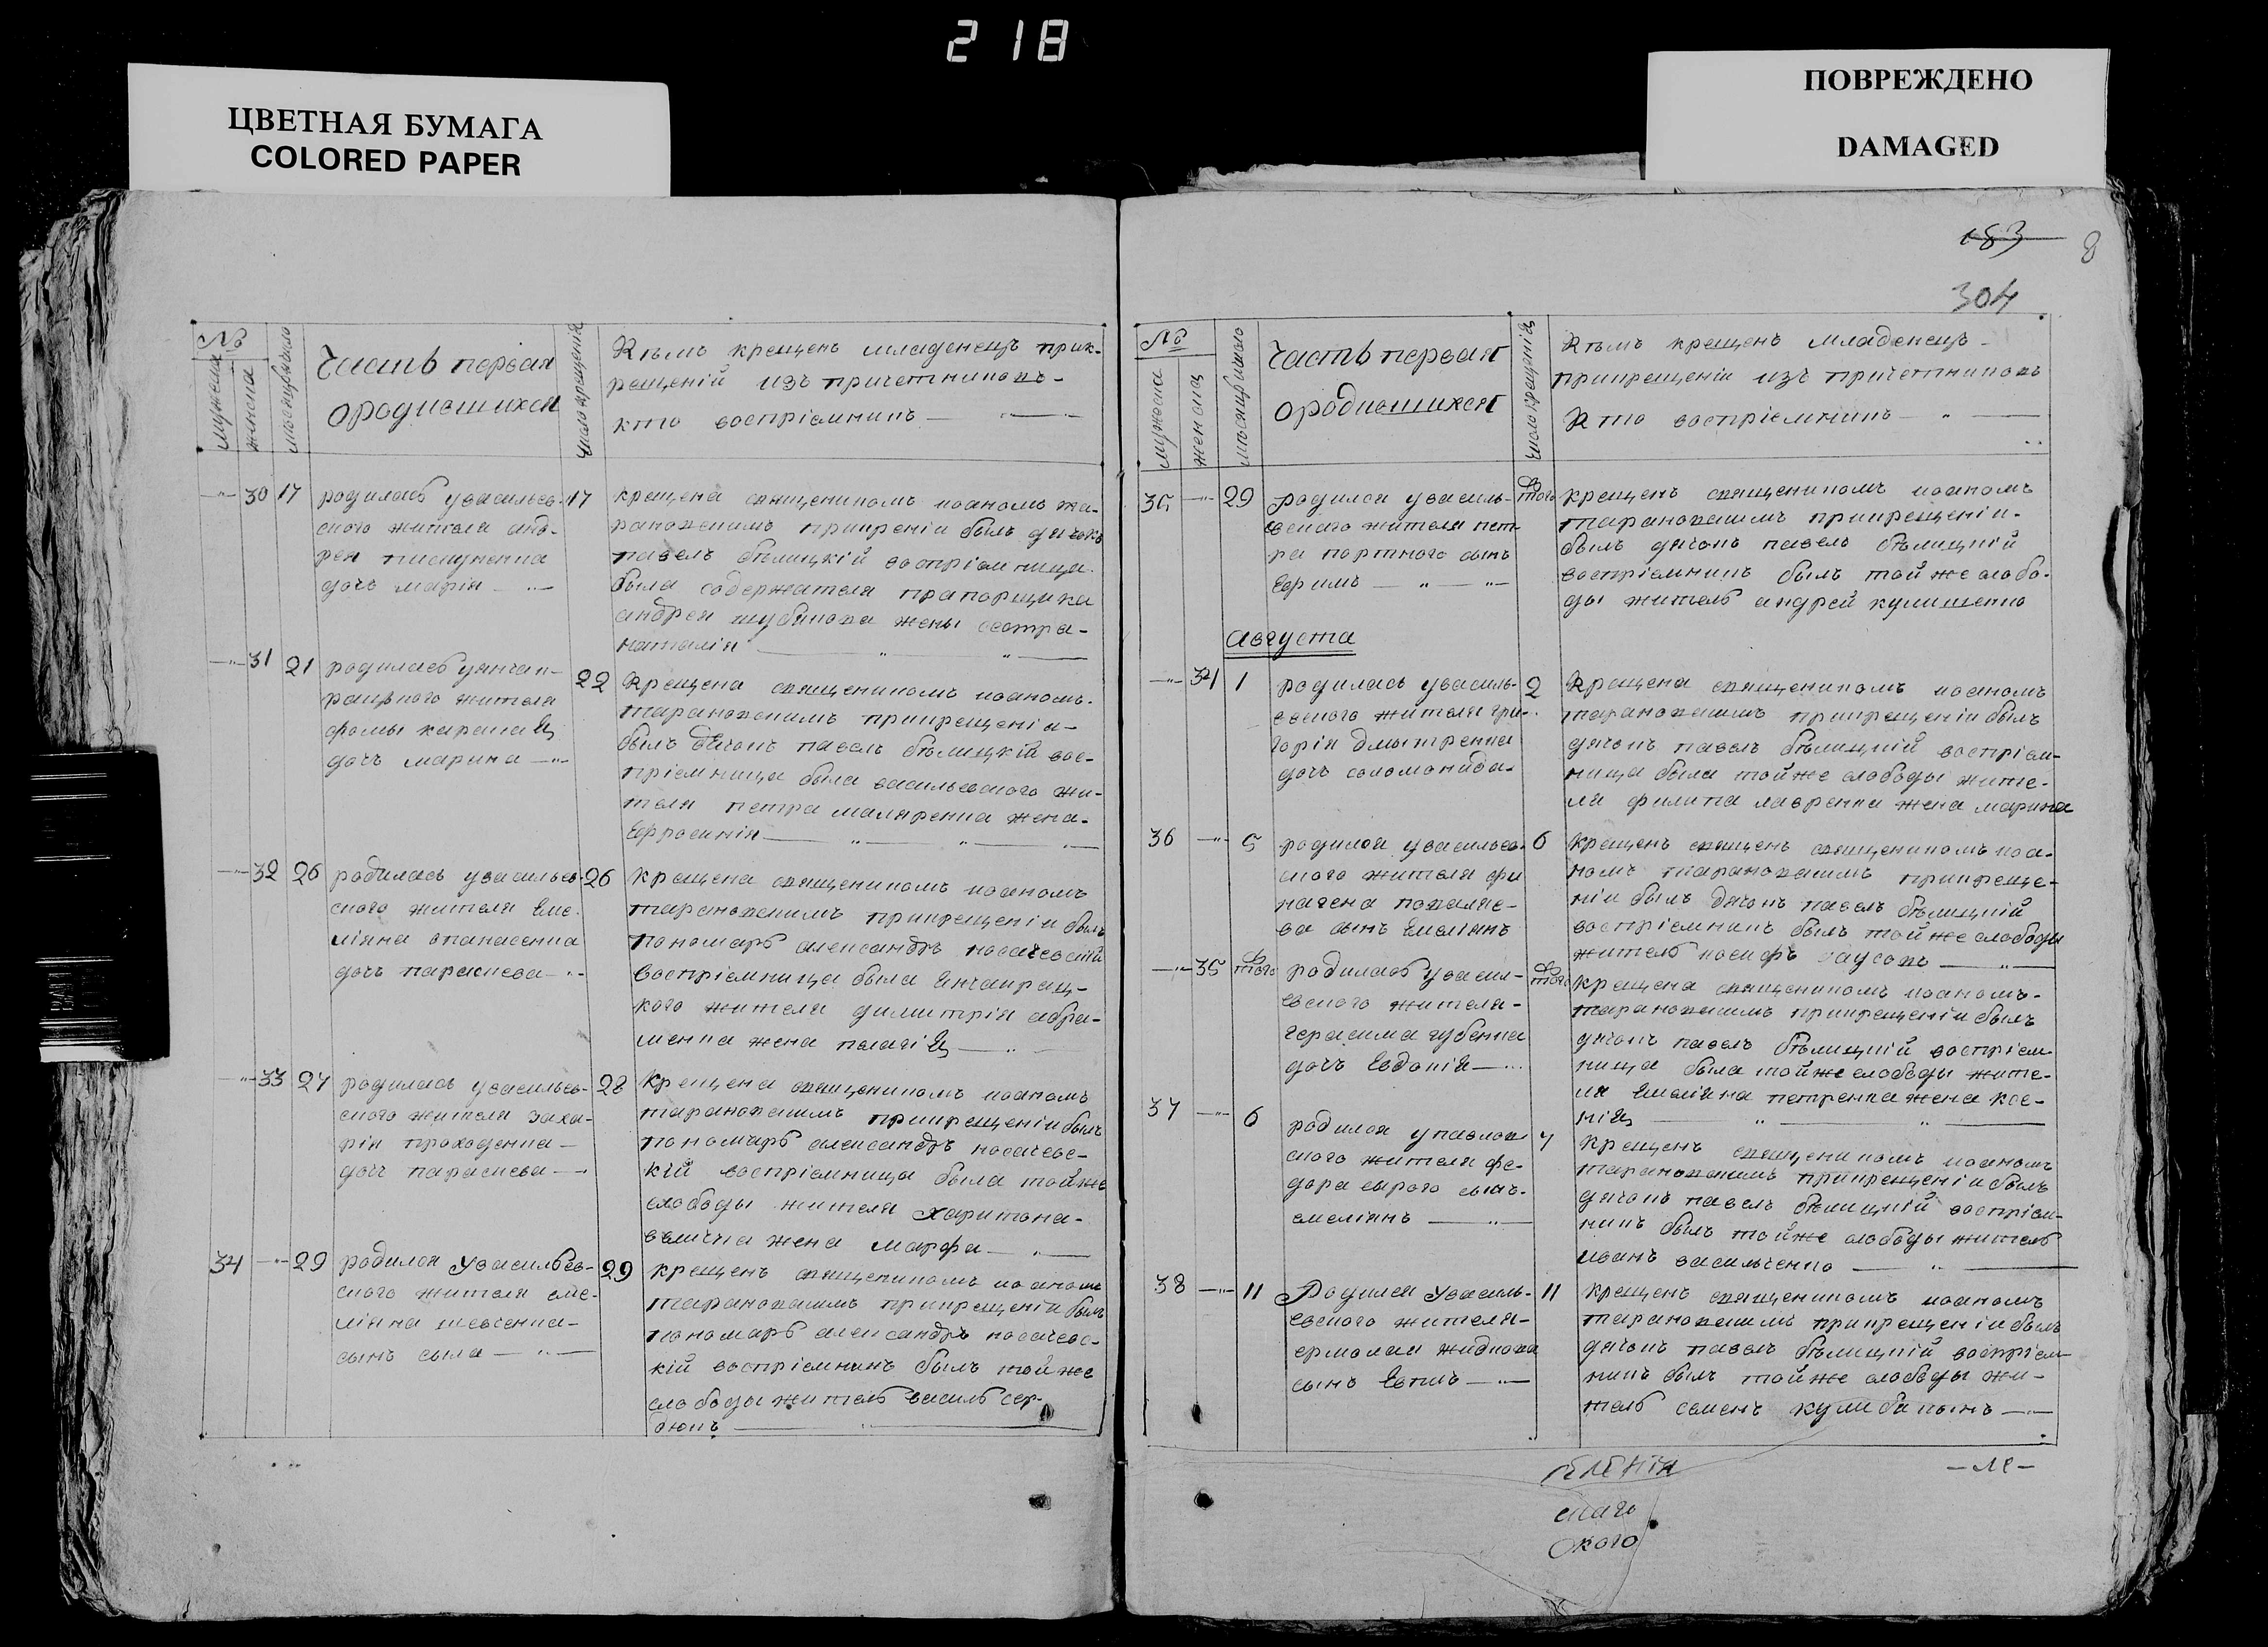 218
ЦВЕТНАЯ БУМАГА
COLORED PAPER
ПОВРЕЖДЕНО
DAMAGED
183
8
304
№
мужеска
женска
месяцъ число
Часть первая
ородившихся
Число крещенія
Кѣмъ крещенъ младенецъ прик-
рещеній изъ причетниковъ-
кто воспріемникъ
30 17 родиласъ увасильев- 17
ского жителя анд-
рея пискуненка
дочь марія
крещена священикомъ иоаномъ
рановскимъ прикреніи былъ дячокъ
павелъ бѣлицкій воспріемница
была содержателя прапорщика
андрея жены сестра-
наталія
31 21 родиласъ уянчак- 22
рацкого жителя
фомы
дочъ марина
Крещена священикомъ иоаномъ
тарановскимъ прикрещеніи-
былъ дячокъ павелъ бѣлицкій вос-
пріемница была васильевского жи-
теля петра маляренка жена-
Ефросинія
32 26 родиласъ увасильев- 26
ского жителя Еме-
ліяна опанасенка
дочъ параскева
крещена священикомъ иоаномъ
тарановскимъ прикрещеніи былъ
пономаръ александръ носачевскій
воспріемница была Янчакрац-
кого жителя димитрія абра-
менка жена
33 27 родиласъ увасильев- 28
ского жителя заха-
рія проходенка-
дочъ параскева
Крещена священикомъ иоаномъ
тарановскимъ прикрещеніи былъ
пономаръ александръ носачевс-
кій воспріемница была тойже
слободы жителя харитона-
величка жена марфа
34 29 родился Увасильев- 29
ского жителя оме-
ліяна шевченка-
сынъ сыла
крещенъ священикомъ иоаномъ
тарановскимъ прикрещеніи былъ
пономаръ александръ носачевс-
кій воспріемникъ былъ тойже
слободы житель василь сер-
дюкъ
№
мужеска
женска
месяцъ число
Часть первая
ородившихся
Число крещенія
Кѣмъ крещенъ младенецъ-
прикрещеніи изъ причетниковъ
Кто воспріемникъ
35 29 родился увасиль- того
евского жителя пет-
ра портного сынъ
Ефимъ
крещенъ священикомъ иоаномъ
тарановскимъ прикрещеніи-
былъ дячокъ павелъ бѣлицкій
воспріемникъ былъ той же слобо-
ды житель андрей кулишенко
Августа
34 1 родиласъ увасиль- 2
евского жителя гри-
горія дмытренка
дочъ соломонида
Крещена священикомъ иоаномъ
тарановскимъ прикрещеніи былъ
дячокъ павелъ бѣлицкій воспріем-
ница была тойже слободы жите-
ля филипа лавренка жена марина
36 5 родился увасильев- 6
ского жителя фи
ногена ковале-
ва сынъ Емеліянъ
крещенъ священъ священикомъ иоа-
номъ тарановскимъ прикреще-
ніи былъ дячокъ павелъ бѣлицкій
воспріемникъ былъ тойже слободы
житель иосифъ
35 того родиласъ увасил- того
евского жителя-
герасима губенка
дочъ Евдокія
крещена священикомъ иоаномъ-
тарановскимъ прикрещеніи былъ
дячокъ павелъ бѣлицкій воспріем-
ница была тойже слободы жите-
ля Емеліяна петренка жена ксе-
нія
37 6 родился упавлов- 7
ского жителя фе-
дора сырого сынъ-
емеліянъ
Крещенъ священикомъ иоаномъ
тарановскимъ прикрещеніи былъ
дячокъ павелъ бѣлицкій воспріем-
никъ былъ тойже слободы житель
иванъ василченко
38 11 Родился Увасиль- 11
евского жителя-
ермолая жидкова
сынъ Евтихъ
крещенъ священикомъ иоаномъ
тарановскимъ прикрещеніи былъ
дячокъ павелъ бѣлицкій воспріем-
никъ былъ тойже слободы жи-
тель семенъ
скаго
окого